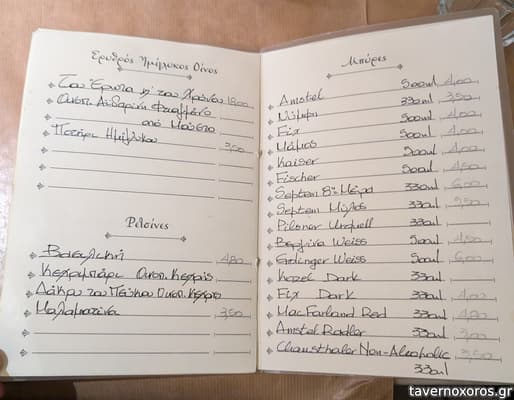 Ερυθρός Ημίγλυκος Οίνος
Του Έρωτα κι του Χρόνου 18,00
Οινοπ.
από Μούστο
Ποτήρι Ημίγλυκο 3,50
Ρετσίνες
Βασιλική 4,80
Κεχριμπάρι Οινοπ. Κεχρής
Δάκρυ του Πεύκου Οινοπ. Κεχρής
Μαλαματίνα 3,50
Μπύρες
Amstel 500ml 4,00
Νύμφη 330ml 3,50
Fix 500ml 4,00
Μάμος 500ml 4,00
Kaiser 500ml 4,50
Fischer 500ml 4,50
Septem 8η Μέρα 330ml 6,00
Septem 330ml 5,50
Pilsner Urquell 330ml
Βεργίνα Weiss 500ml 4,50
Erdinger Weiss 500ml 6,00
Kozel Dark 330ml
Fix Dark 330ml 4,00
MacFarland Red 330ml 4,80
Amstel Radler 330ml 3,00
Clausthaler Non-Alcoholic 3,50
330ml
tavernoxoros.gr